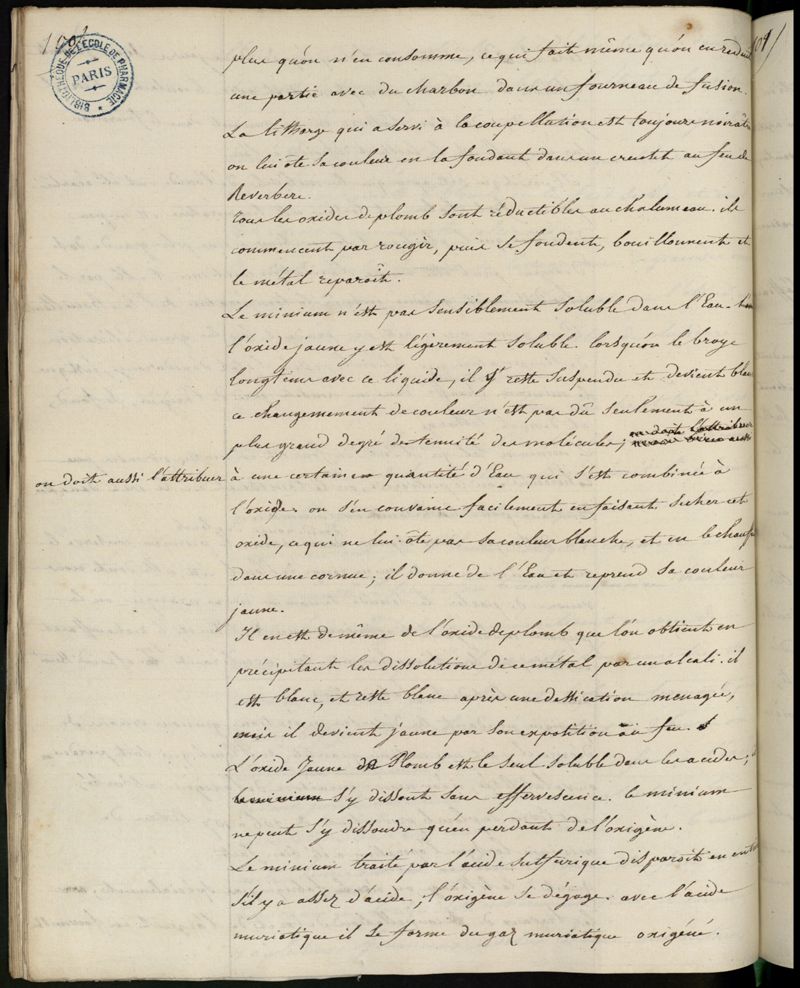 BIBLIOTHEQUE DE L'ECOLE DE PHARMACIE
PARIS
plus qu'on n'en consomme, ce qui fait même qu'on en réduit
une partie avec du charbon dans un fourneau de fusion.
La litharge qui a servi à la coupellation est toujours noirâtre
on lui ote sa couleur en la fondant dans un creuset au feu de
Reverbere.
Tous les oxides de plomb sont réductibles au chalumeau. ils
commencent par rougir, puis se fondent, bouillonnent et
le métal reparoît.
Le minium n'est pas sensiblement soluble dans l'Eau.
l'oxide jaune y est légèrement soluble. lorsqu'on le broye
longtems avec ce liquide, il y reste suspendu et devient blanc
ce changemement de couleur n'est pas dû seulement à un
plus grand degré de tenuité des molécules;
on doit aussi l'attribuer à une certaine quantité d'Eau qui s'est combinée à
l'oxide. on s'en convainc facilement en faisant secher cet
oxide, ce qui ne lui ôte pas sa couleur blanche, et en le chauffant
dans une cornue; il donne de l'Eau et reprend sa couleur
jaune.
Il en est de même de l'oxide de plomb que l'on obtient en
précipitant les dissolutions de ce métal par un alcali. il
est blanc, et reste blanc après une dessication menagée,
mais il devient jaune par son exposition au feu.
L'oxide Jaune de Plomb est le seul soluble dans les acides;
le minium s'y dissout sans effervescence. le minium
ne peut s'y dissoudre qu'en perdant de l'oxigène.
Le minium traité par l'acide sulfurique disparoît en entier
s'il y a assez d'acide; l'oxigène se dégage. avec l'acide
muriatique il se forme du gaz muriatique oxigéné.